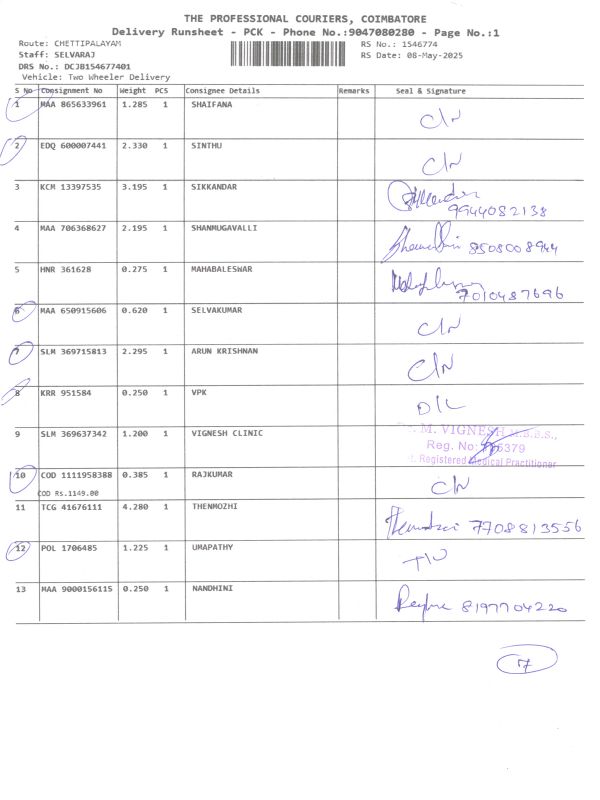 THE PROFESSIONAL COURIERS, COIMBATORE
Delivery Runsheet - PCK - Phone No.:9047080280 - Page No.:1
Route: CHETTIPALAYAM RS No.: 1546774
Staff: SELVARAJ RS Date: 08-May-2025
DRS No.: DCJB154677401
Vehicle: Two Wheeler Delivery
S No Consignment No Weight PCS Consignee Details Remarks Seal & Signature
1 MAA 865633961 1.285 1 SHAIFANA C/N
2 EDQ 600007441 2.330 1 SINTHU C/N
3 KCM 13397535 3.195 1 SIKKANDAR
9944082138
4 MAA 706368627 2.195 1 SHANMUGAVALLI 8508008944
5 HNR 361628 0.275 1 MAHABALESWAR
7010487696
6 MAA 650915606 0.620 1 SELVAKUMAR C/N
7 SLM 369715813 2.295 1 ARUN KRISHNAN C/N
8 KRR 951584 0.250 1 VPK D/L
9 SLM 369637342 1.200 1 VIGNESH CLINIC M. VIGNESH M.B.B.S.,
Reg. No: 5379
Registered Medical Practitioner
10 COD 1111958388 0.385 1 RAJKUMAR C/N
COD Rs.1149.00
11 TCG 41676111 4.280 1 THENMOZHI 7708813556
12 POL 1706485 1.225 1 UMAPATHY
13 MAA 9000156115 0.250 1 NANDHINI 8197704220